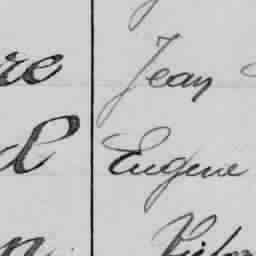 re Jean
d Eugene
n